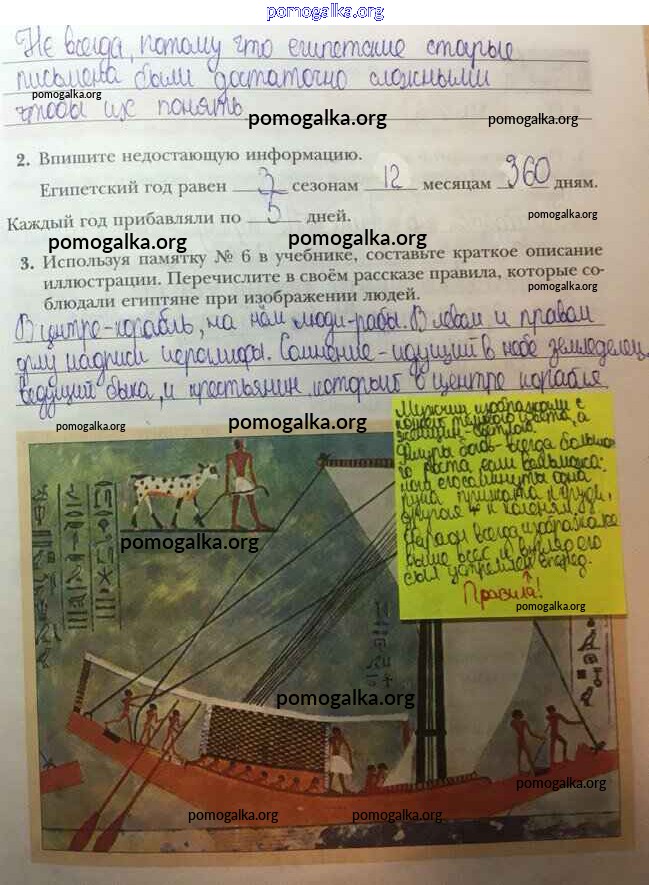 pomogalka.org
Не всегда, потому что египетские старые
письмена были достаточно сложными
pomogalka.org
чтобы их понять
pomogalka.org
pomogalka.org
2. Впишите недостающую информацию.
Египетский год равен 3 сезонам 12 месяцам 360 дням.
pomogalka.org
Каждый год прибавляли по 5 дней.
pomogalka.org
pomogalka.org
3. Используя памятку № 6 в учебнике, составьте краткое описание
иллюстрации. Перечислите в своём рассказе правила, которые со-
pomogalka.org
блюдали египтяне при изображении людей.
В центре-корабль, на нём люди-рабы. В левом и правом
углу надписи иероглифы. идущий в небе земледелец,
ведущий быка, и крестьянин который в центре корабля
pomogalka.org
pomogalka.org
Мужчин изображали с
кожей тёмного цвета, а
женщин-светлого
Фигуры богов-всегда больше-
го роста, если вельможа-
ноги его сдвинуты одна
рука прижата к груди,
другая к коленям
Фараон всегда изображался
выше всех и взгляд его
был устремлён вперёд.
Правила!
pomogalka.org
pomogalka.org
pomogalka.org
pomogalka.org
pomogalka.org
pomogalka.org